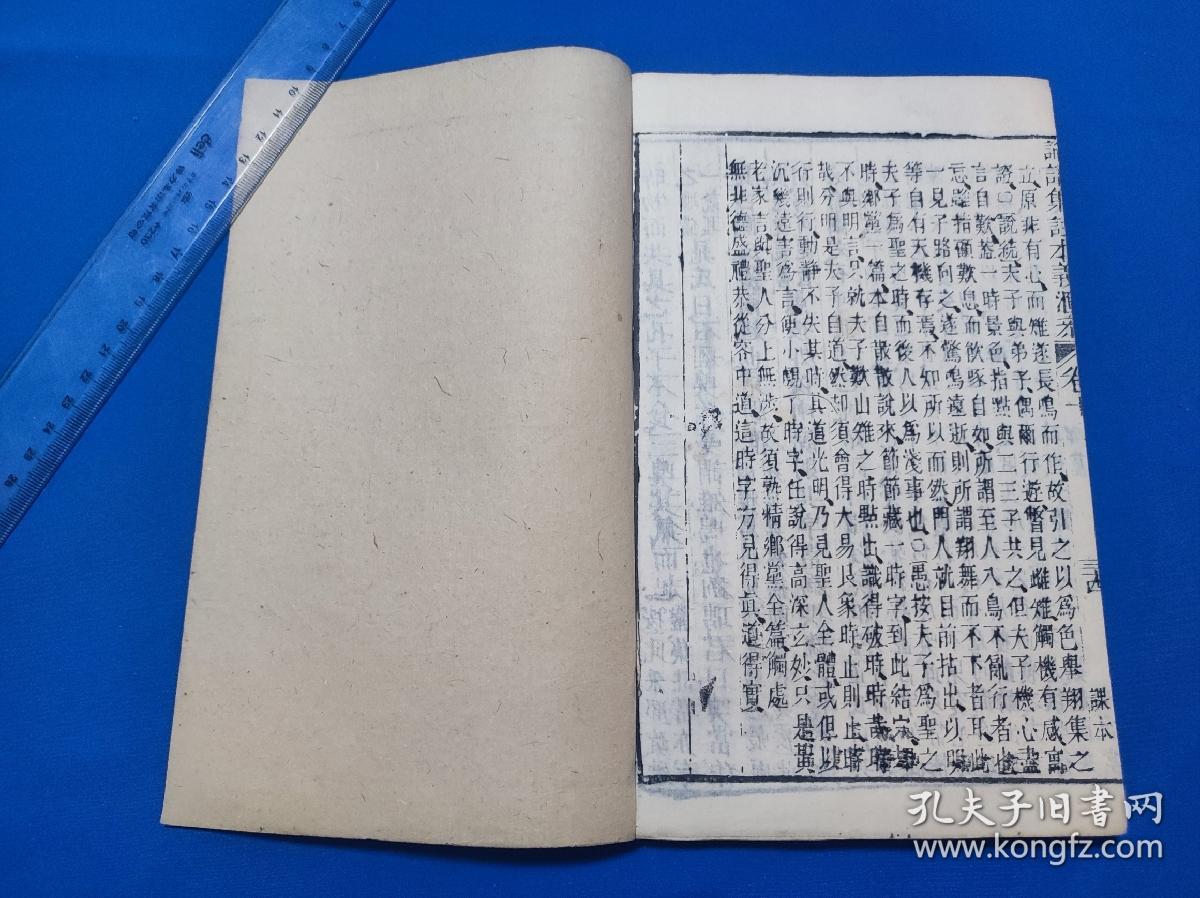 論語集註本義滙叅 卷十 三四 課本
立原非有心而雉遂長鳴而作故引之以爲色舉翔集之
證○說統夫子與弟子偶爾行遊瞥見雌雉觸機有感寓
言自歎蓋一時景色指點與二三子共之但夫子機心盡
忘雖指顧歎息而飲啄自如所謂至人入鳥不亂行者也
一見子路向之遂驚鳴遠逝則所謂翔舞而不下者耳此
等自有天機存焉不知所以而然門人就目前拈出以明
夫子爲聖之時而後人以爲淺事也○愚按夫子爲聖之
時鄉黨一篇本自散散說來節節藏一時字到此結定却
不與明言只就夫子歎山雉之時點出識得破時時哉時
哉分明是夫子自道然却須會得大易艮象時止則止時
行則行動靜不失其時其道光明乃見聖人全體或但以
沉幾遠害爲言便小覷了時字任說得高深玄妙只是黃
老家言與聖人分上無涉故須熟精鄉黨全篇觸處
無非德盛禮恭從容中道這時字方見得真道得實
deli
孔夫子旧書网
www.kongfz.com